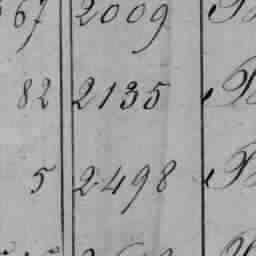 67 2009
82 2135
5 2498